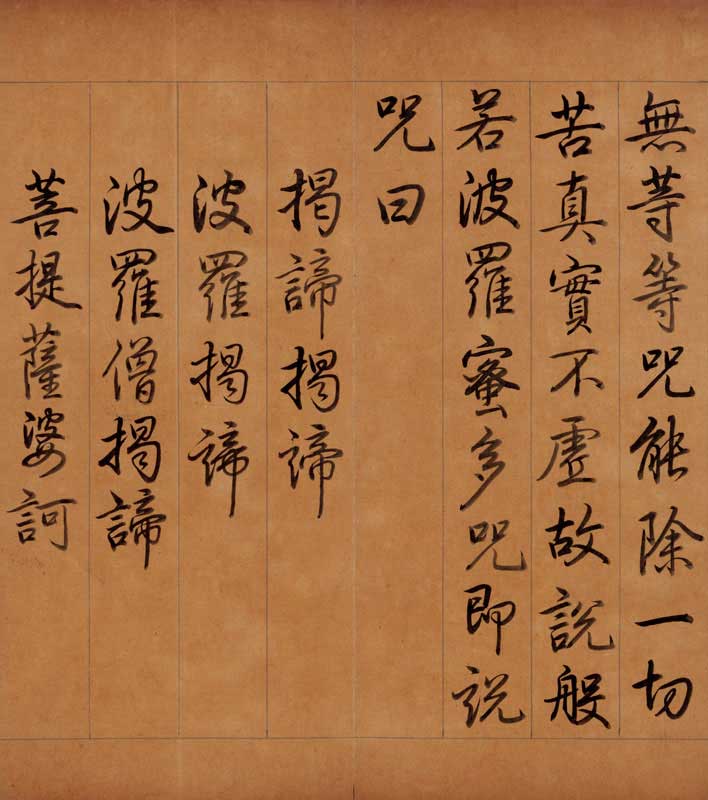 無等等咒能除一切
苦真實不虛故說般
若波羅蜜多咒即說
咒曰
揭諦揭諦
波羅揭諦
波羅僧揭諦
菩提薩婆訶